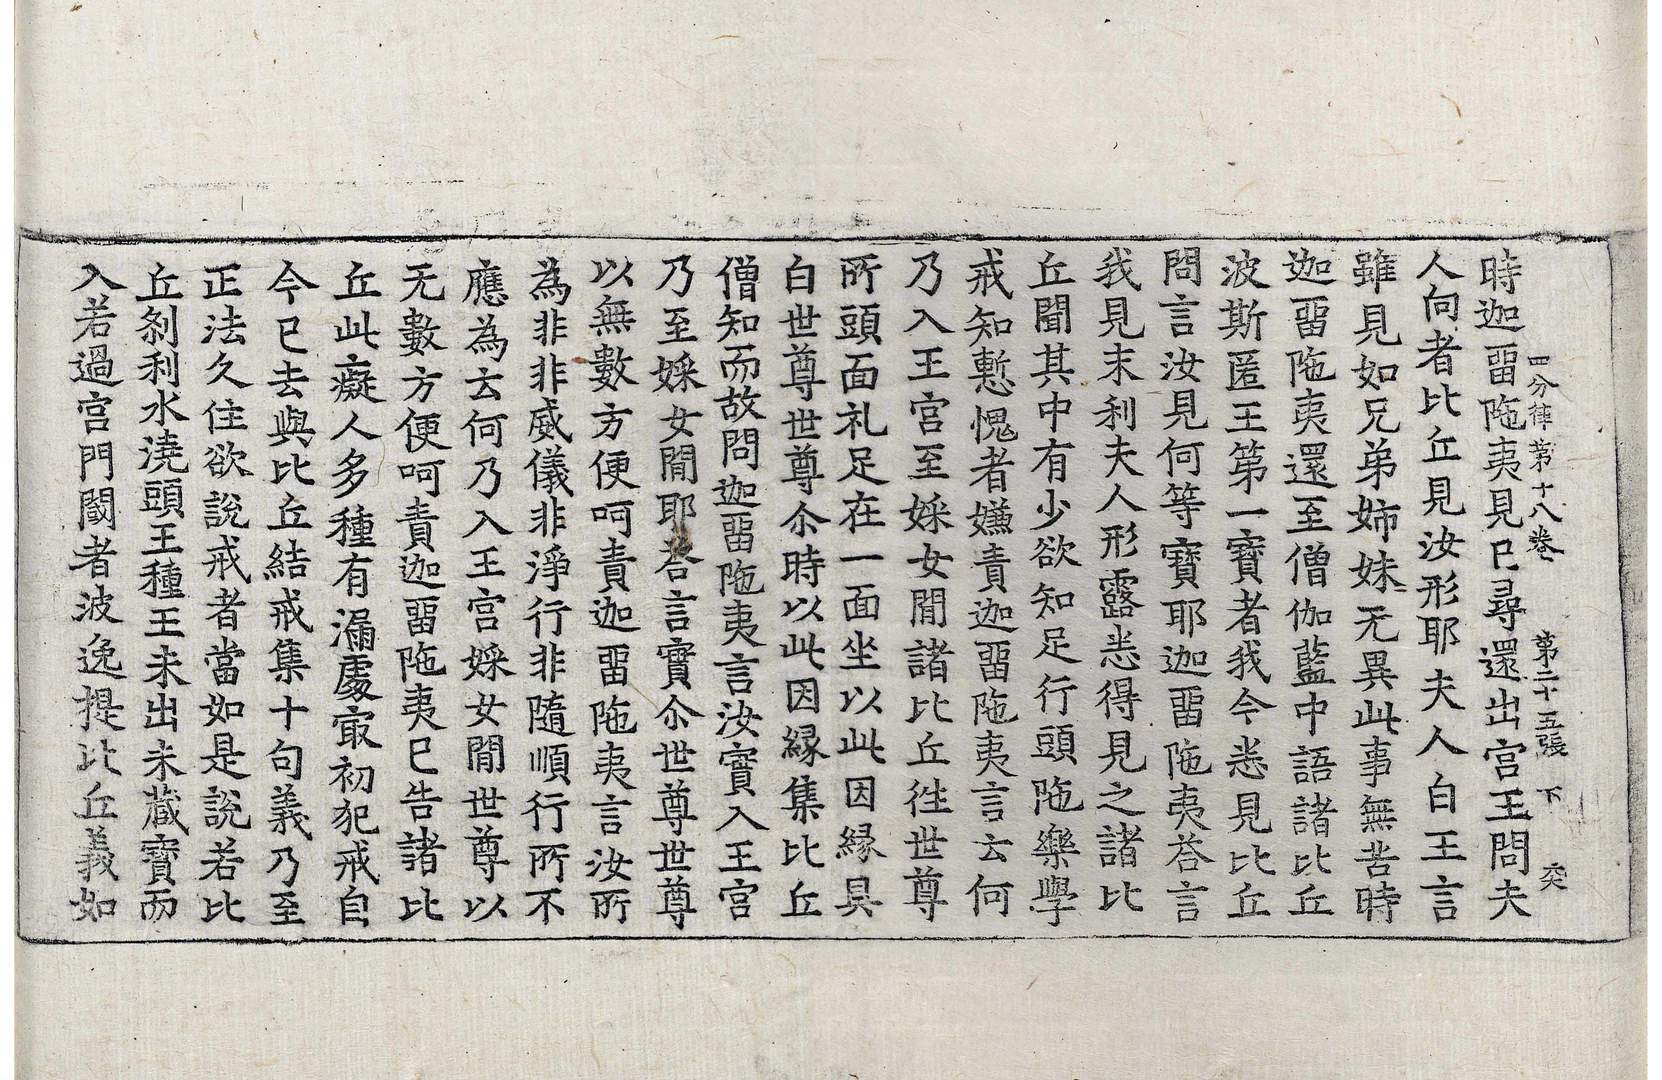 四分律第十八卷 第二十五張 下 突
時迦畱陁夷見已尋還出宮王問夫
人向者比丘見汝形耶夫人白王言
雖見如兄弟姉妹无異此事無苦時
迦畱陁夷還至僧伽藍中語諸比丘
波斯匿王第一寶者我今悉見比丘
問言汝見何等寶耶迦畱陁夷荅言
我見末利夫人形露悉得見之諸比
丘聞其中有少欲知足行頭陁樂學
戒知慙愧者嫌責迦畱陁夷言云何
乃入王宮至婇女閒諸比丘徃世尊
所頭面礼足在一面坐以此因緣具
白世尊世尊尒時以此因緣集比丘
僧知而故問迦畱陁夷言汝實入王宮
乃至婇女閒耶荅言實尒世尊世尊
以無數方便呵責迦畱陁夷言汝所
為非非威儀非淨行非隨順行所不
應為云何乃入王宮婇女閒世尊以
无數方便呵責迦畱陁夷已告諸比
丘此癡人多種有漏處冣初犯戒自
今已去與比丘結戒集十句義乃至
正法久住欲說戒者當如是說若比
丘剎利水澆頭王種王未出未藏寶而
入若過宮門閾者波逸提比丘義如